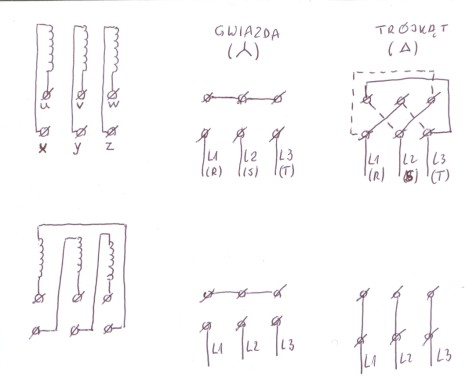 GWIAZDA
(⅄)
TRÓJKĄT
(Δ)
u v w
x y z
L1 L2 L3
(R) (S) (T)
L1 L2 L3
(R) (S) (T)
L1 L2 L3
L1 L2 L3